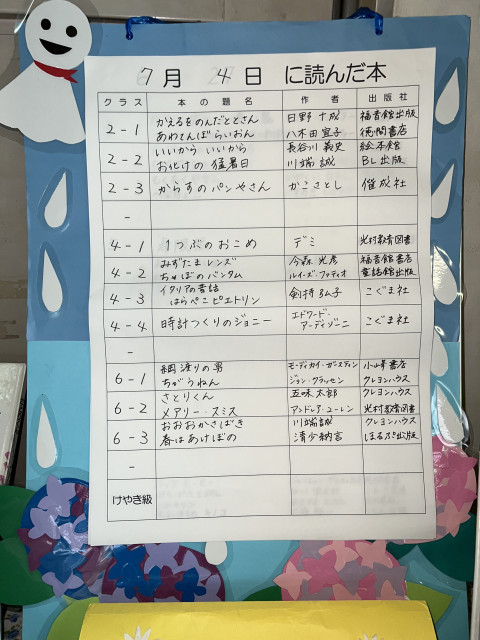 7月 4日 に読んだ本
クラス 本の題名 作者 出版社
2-1 かえるをのんだととさん 日野 十成 福音館出版
あわてんぼらいおん 八木田 宜子 徳間書店
2-2 いいから いいから 長谷川 義史 絵本館
お化けの 猛暑日 川端 誠 BL出版
2-3 からすのパンやさん かこさとし 偕成社
-
4-1 1つぶのおこめ デミ 光村教育図書
4-2 みずたまレンズ 今森 光彦 福音館書店
ちゃぼのバンタム ルイーズ・ファティオ 童話館出版
4-3 イタリアの昔話 剣持弘子 こぐま社
はらぺこピエトリン
4-4 時計つくりのジョニー エドワード・アーディゾーニ こぐま社
-
6-1 綱渡りの男 モーディカイ・ガースティン 小峰書店
ちがうねん ジョン・クラッセン クレヨンハウス
6-2 さとりくん 五味 太郎 クレヨンハウス
メアリー・スミス アンドレア・ユーレン 光村教育図書
6-3 おおおかさばき 川端 誠 クレヨンハウス
春はあけぼの 清少納言 ほるぷ出版
-
けやき級